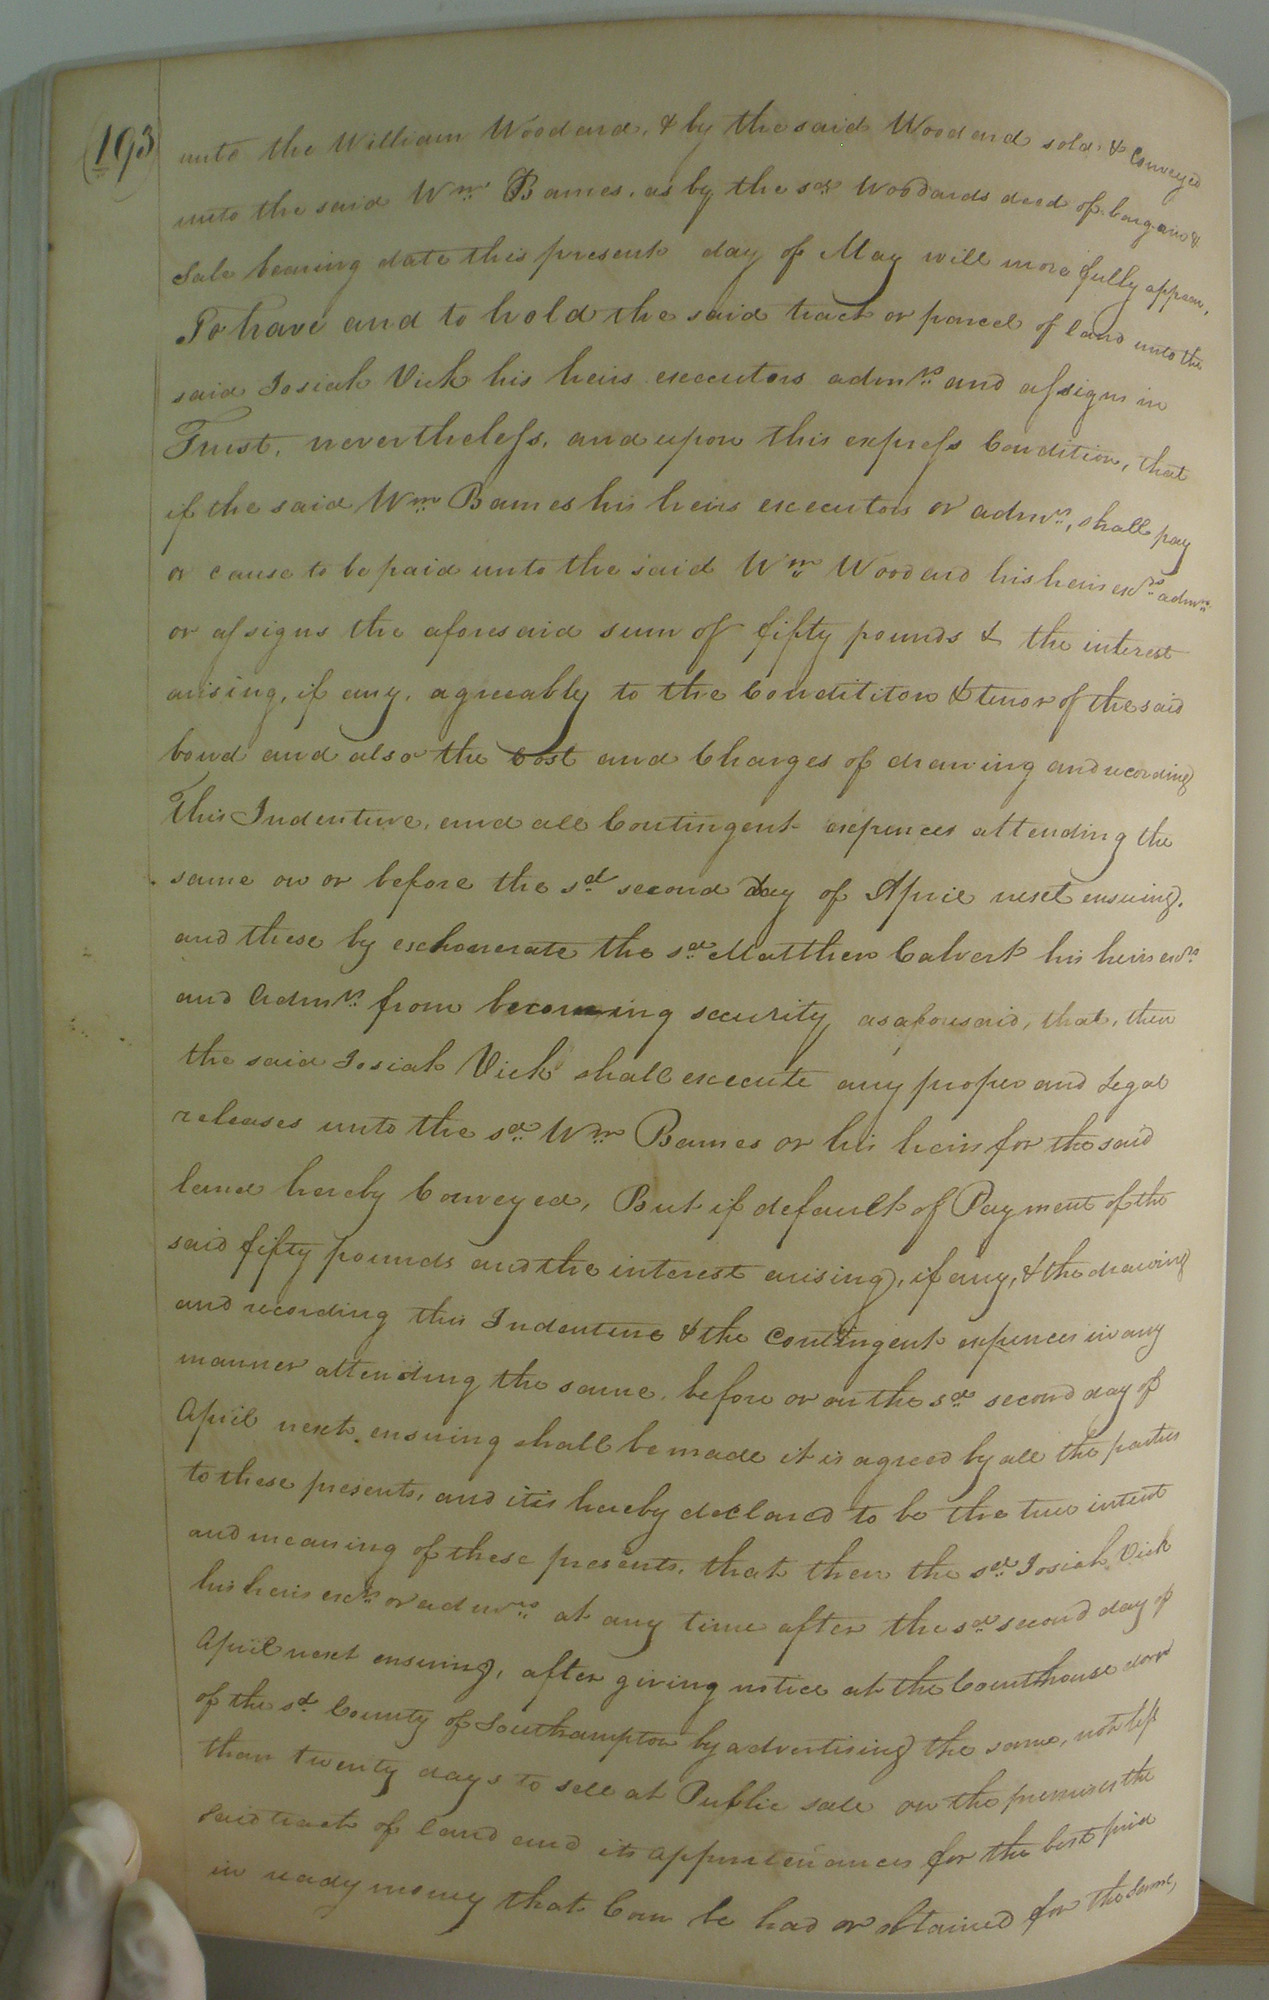 193
unto the William Woodard, & by the said Woodard sold & Conveyed
unto the said Wm Barnes, as by the sd Woodards deed of bargain &
Sale bearing date this present day of May will more fully appear,
To have and to hold the said tract or parcel of land unto the
said Josiah Vick his heirs executors admrs and assigns in
Trust, nevertheless, and upon this express Condition, that
if the said Wm Barnes his heirs executors or admrs, shall pay
or cause to be paid unto the said Wm Woodard his heirs exrs admrs
or assigns the aforesaid sum of fifty pounds & the interest
arising, if any, agreeably to the Condititon & tenor of the said
bond and also the Cost and Charges of drawing and recording
This Indenture, and all Contingent expences attending the
same on or before the sd second day of April next ensuing,
and these by exhonerate the sd Matthew Calvert his heirs exrs
and Admrs from becoming security as aforesaid, that, then
the said Josiah Vick shall execute any proper and Legal
releases unto the sd Wm Barnes or his heirs for the said
land hereby Conveyed, But if default of Payment of the
said fifty pounds and the interest arising, if any, & the drawing
and recording this Indenture & the Contingent expences in any
manner attending the same, before or on the sd second day of
April next ensuing shall be made it is agreed by all the parties
to these presents, and it is hereby declared to be the true intent
and meaning of these presents, that then the sd Josiah Vick
his heirs exrs or admrs at any time after the sd second day of
April next ensuing, after giving notice at the Courthouse door
of the sd County of Southampton by advertising the same, not less
than twenty days to sell at Public sale on the premises the
said tract of land and its appurtenances for the best price
in ready money that Can be had or obtained for the same,